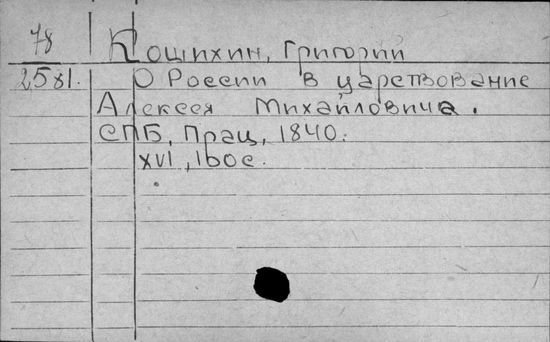 78
Кошихин, Григорий
2581.
О России в царствование
Алексея Михайловича.
СПБ, Прац, 1840.
XVI, 160с.